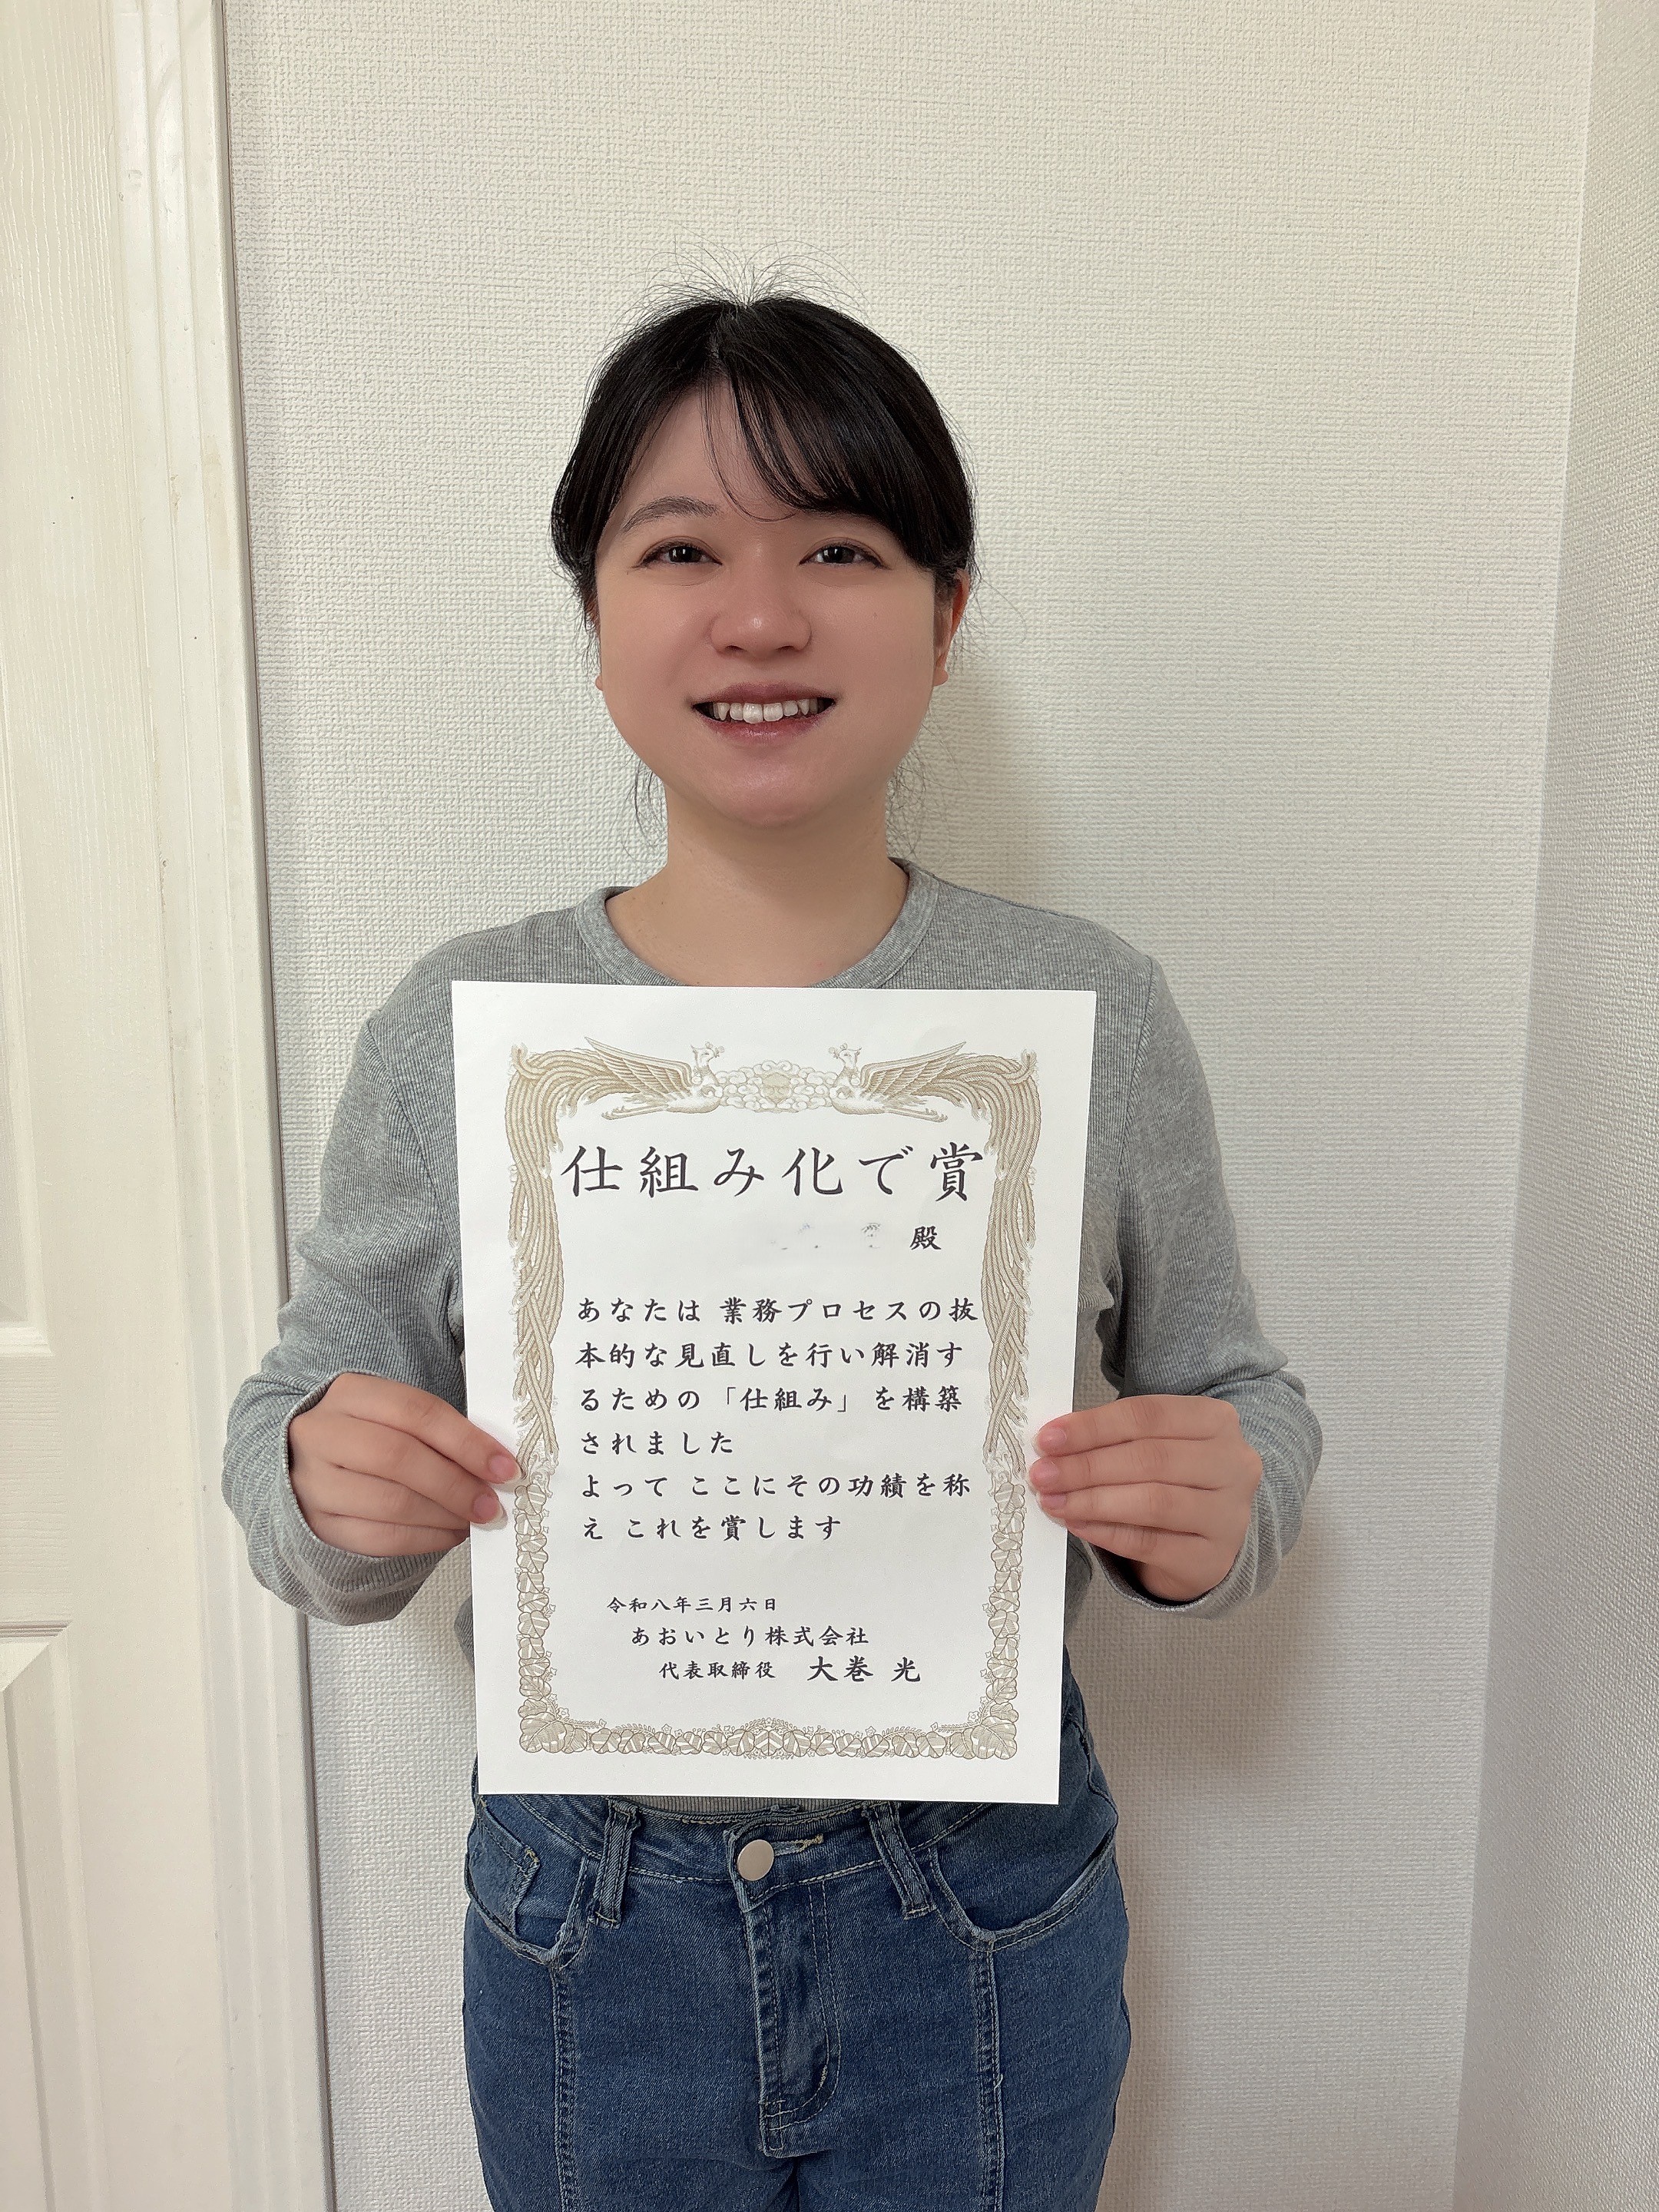 仕組み化で賞
殿
あなたは 業務プロセスの抜
本的な見直しを行い解消す
るための「仕組み」を構築
されました
よって ここにその功績を称
え これを賞します
令和八年三月六日
あおいとり株式会社
代表取締役 大巻 光